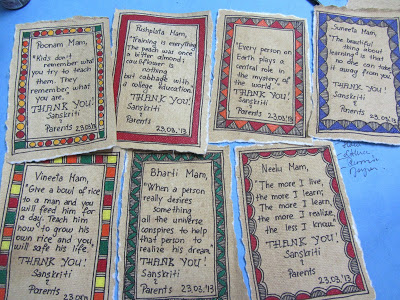 Poonam Mam,
"Kids don't
remember what
you try to teach
them. They
remember what
you are."
THANK YOU!
Sanskriti
&
Parents 23.03.'13
Pushplata Mam,
"Training is everything.
The peach was once
a bitter almond;
cauliflower is
nothing
but cabbage with
a college education."
THANK YOU!
Sanskriti
&
Parents
23.03.'13
"Every person on
Earth plays a
central role in
the mystery of
the world."
THANK YOU!
Sanskriti
&
Parents
23.03.'13
Suneeta Mam,
"The beautiful
thing about
learning is that
no one can take
it away from you."
THANK YOU!
Sanskriti
&
Parents
23.03.'13
Vineeta Mam,
"Give a bowl of rice
to a man and you
will feed him for
a day. Teach him
how to grow his
own rice and you
will save his life."
THANK YOU!
Sanskriti
&
Parents
23.03.'13
Bharti Mam,
"When a person
really desires
something,
all the universe
conspires to help
that person to
realize his dream."
THANK YOU!
Sanskriti
&
Parents
23.03.'13
Neelu Mam,
"The more I live,
the more I learn,
the more I learn,
the more I realize,
the less I know."
THANK YOU!
Sanskriti
&
Parents
23.03.'13